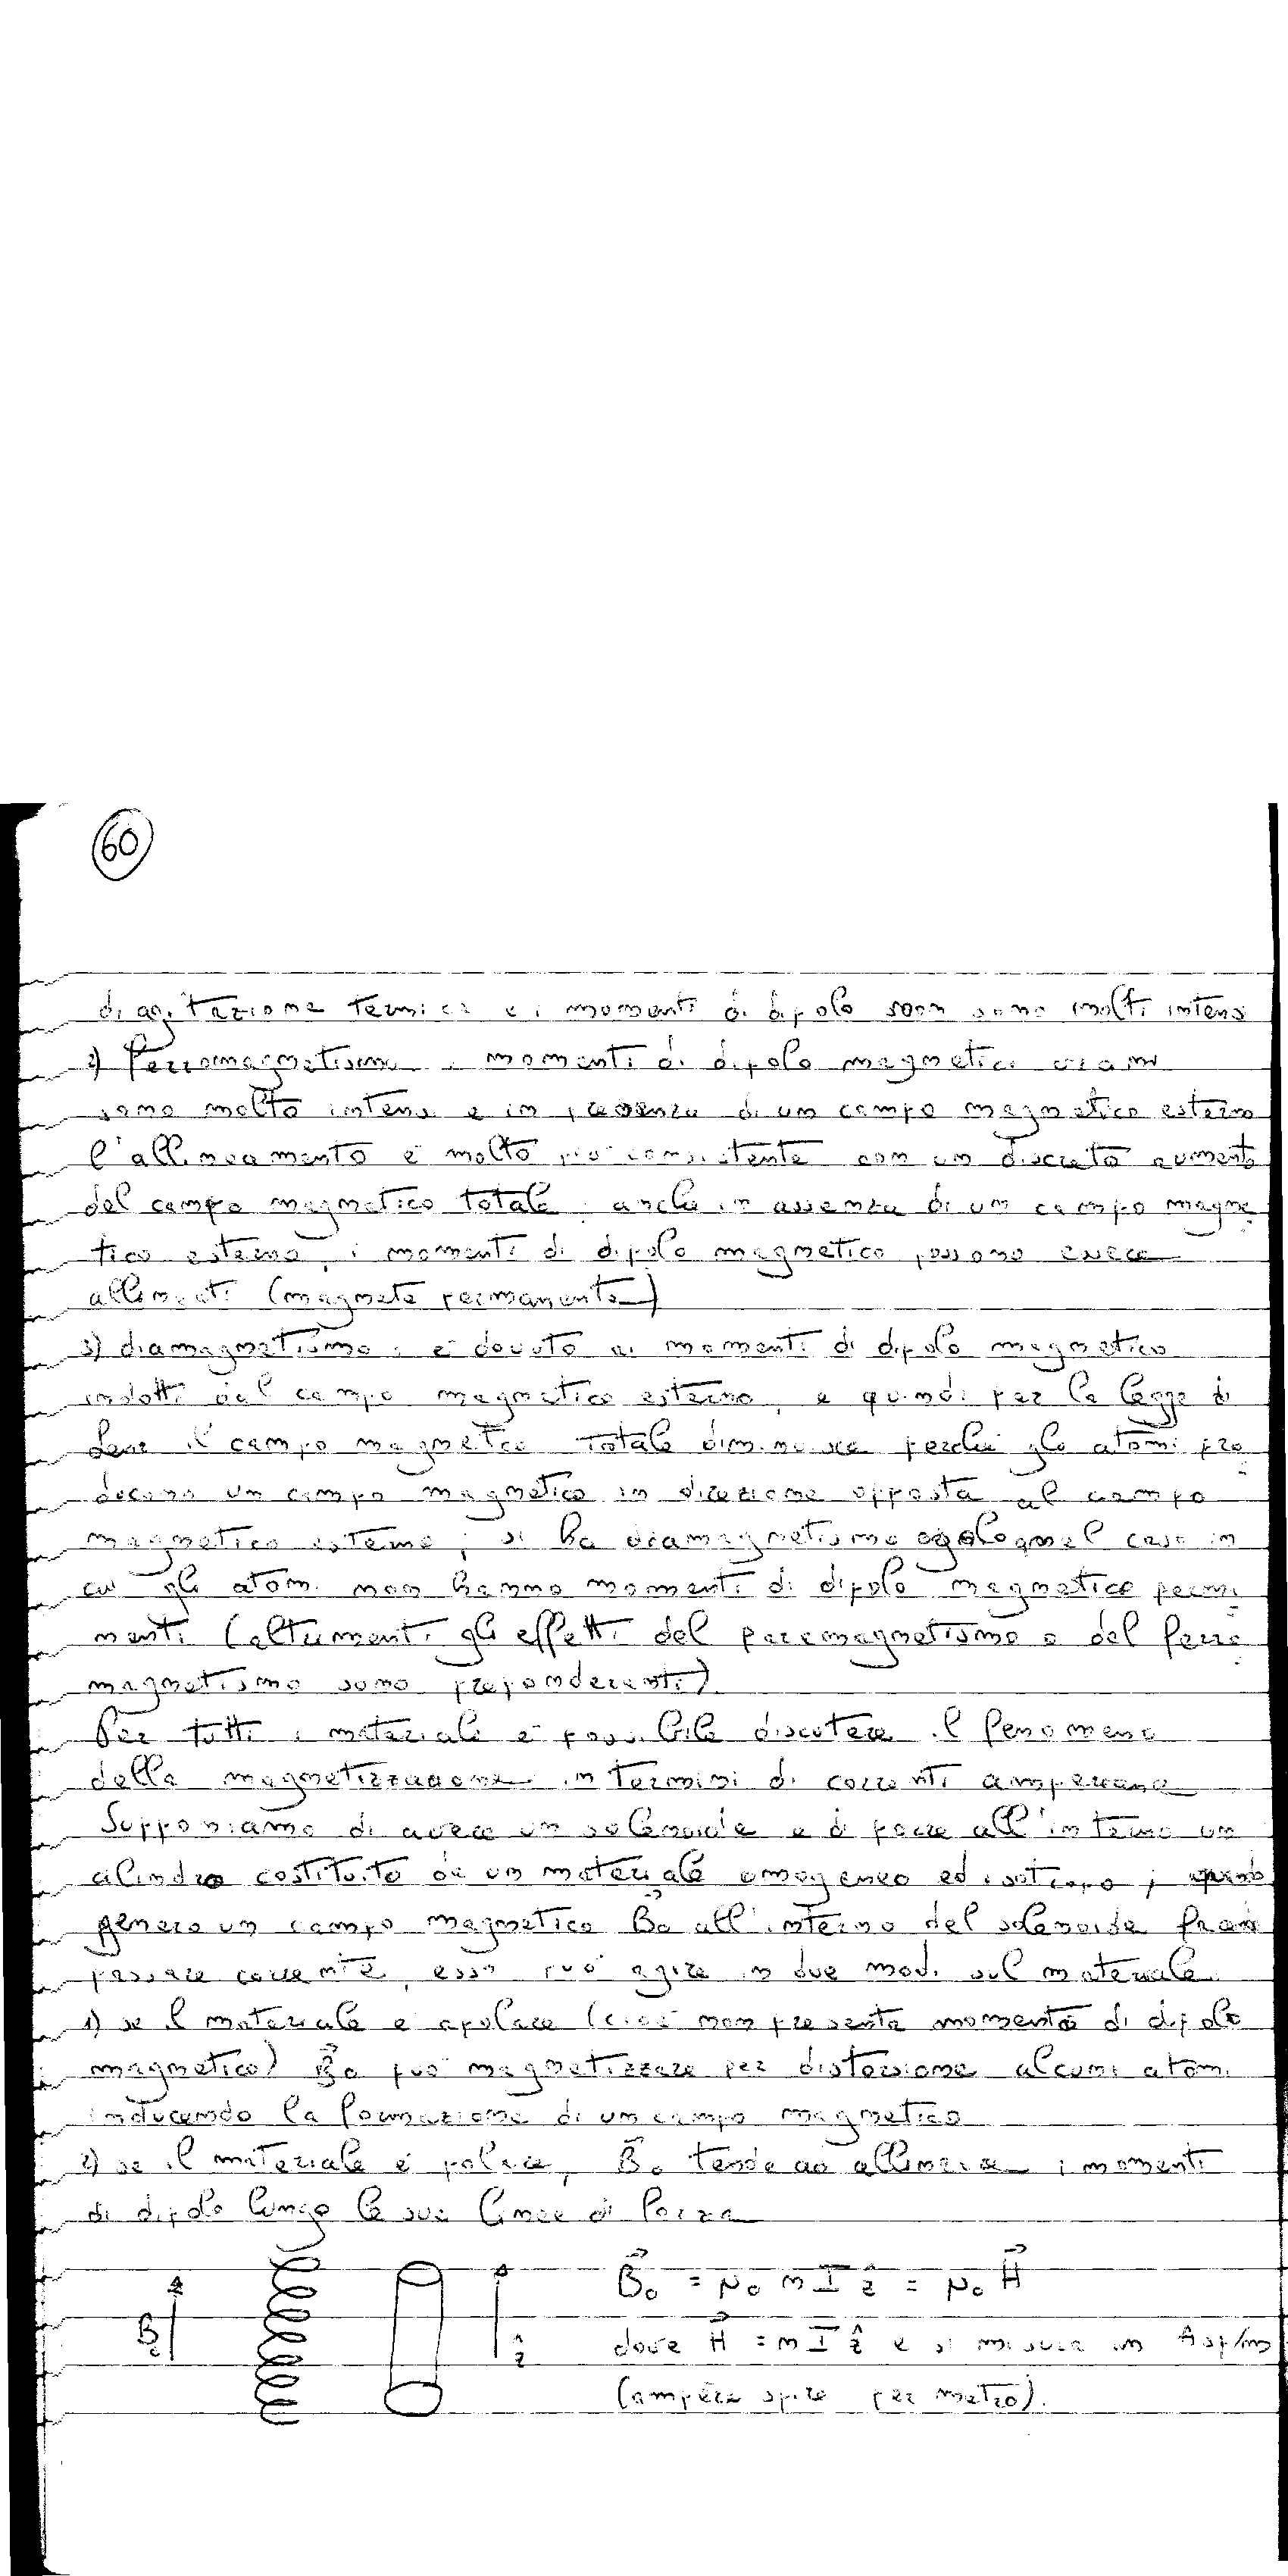 60
di agitazione termica e i momenti di dipolo sono molti intensi
2) Ferromagnetismo i momenti di dipolo magnetici
sono molto intensi e in presenza di un campo magnetico esterno
l'allineamento è molto più consistente con un discreto aumento
del campo magnetico totale; anche in assenza di un campo magne
tico esterno, i momenti di dipolo magnetico possono essere
allineati (magnete permanente)
3) diamagnetismo: è dovuto ai momenti di dipolo magnetico
indotti dal campo magnetico esterno, e quindi per la legge di
Lenz il campo magnetico totale diminuisce perché gli atomi pro
ducono un campo magnetico in direzione opposta al campo
magnetico esterno; si ha diamagnetismo nel caso in
cui gli atomi non hanno momenti di dipolo magnetico perma
nenti (altrimenti gli effetti del paramagnetismo o del ferro
magnetismo sono preponderanti)
Per tutti i materiale è possibile discutere il fenomeno
della magnetizzazione in termini di correnti amperiane
Supponiamo di avere un solenoide e di porre all'interno un
cilindro costituito da un materiale omogeneo ed isotropo; quando
genero un campo magnetico B⃗o all'interno del solenoide
passare corrente, esso può agire in due modi sul materiale.
1) se il materiale è apolare (cioè non presenta momento di dipolo
magnetico) B⃗o può magnetizzare per distorsione alcuni atomi
inducendo la formazione di un campo magnetico
2) se il materiale è polare, B⃗o tende ad allineare i momenti
di dipolo lungo le sue linee di forza
B⃗o = μo n I ẑ = μo H⃗
Bo ẑ dove H⃗ = n I ẑ e si misura in A sp/m
(ampère spire per metro).